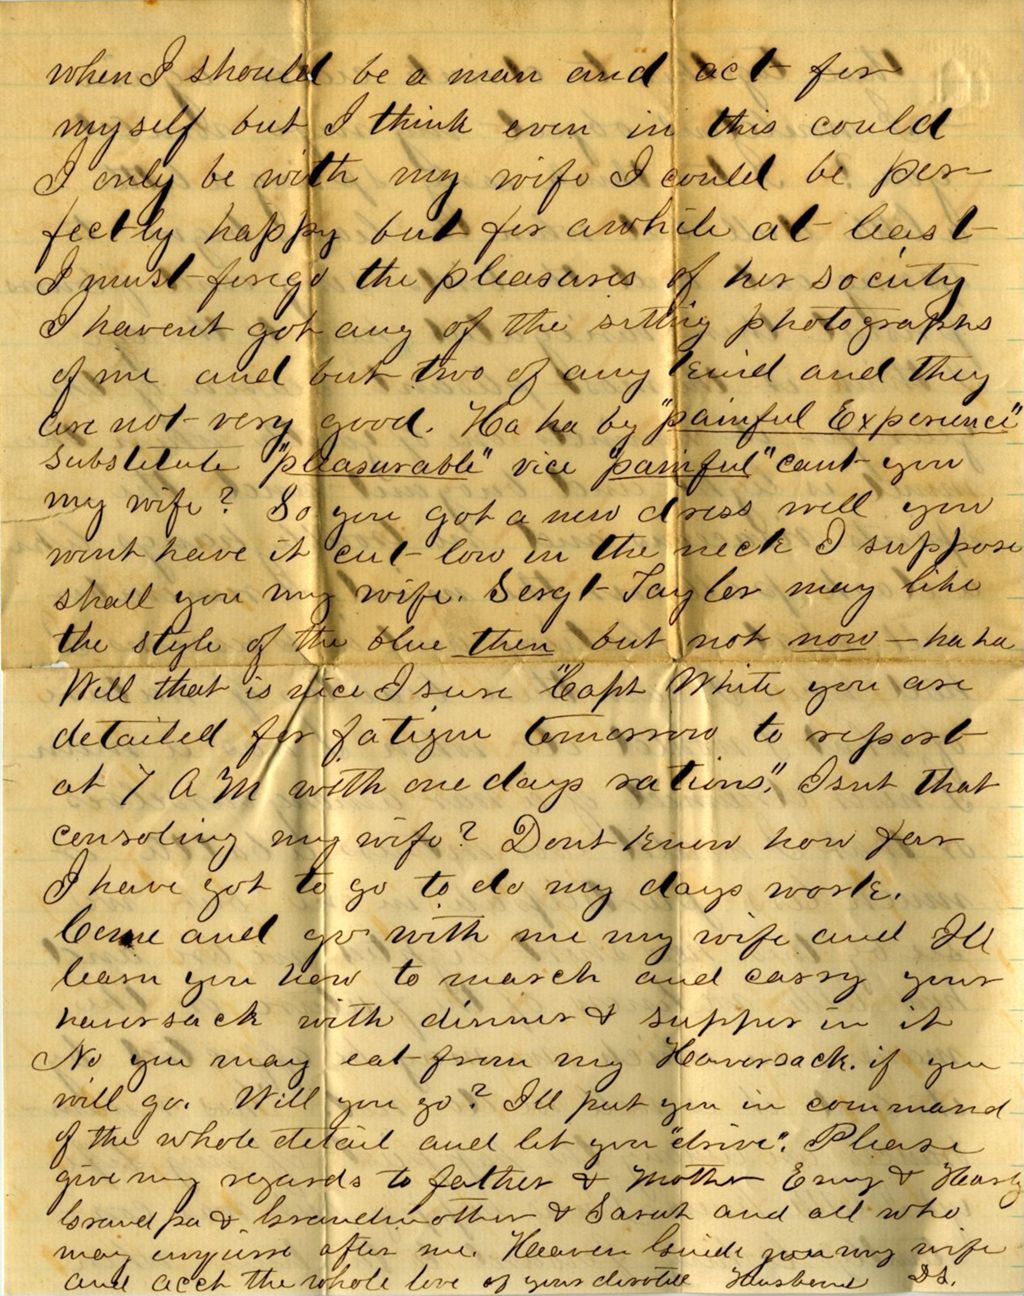 when I should be a man and act for
myself but I think even in this could
I only be with my wife I could be per
fectly happy but for awhile at least
I must forego the pleasures of her society
I havent got any of the sitting photographs
of me and but two of any kind and they
are not very good. Ha ha by "painful Experience"
substitute "pleasurable" vice "painful" cant you
my wife? So you got a new dress well you
wont have it cut low in the neck I suppose
shall you my wife. Sergt Taylor may like
the style of the blue then but not now — ha ha
Well that is nice I sure "Capt White you are
detailed for fatigue tomorrow to report
at 7 A M with one days rations". Isnt that
consoling my wife? Dont know how far
I have got to go to do my days work.
Come and go with me my wife and Ill
learn you how to march and carry your
haversack with dinner & supper in it
No you may eat from my Haversack. if you
will go. Will you go? Ill put you in command
of the whole detail and let you "drive". Please
give my regards to father & Mother & Harty
Grandpa & Grandmother & Sarah and all who
may enquire after me. Heaven Guide you my wife
and acct the whole love of your devoted Husband DS.